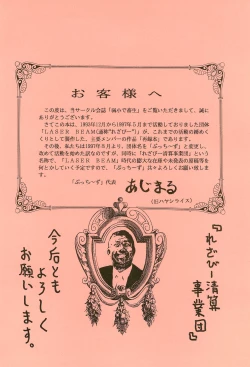 お客様へ
この度は、当サークル会誌「 で産生」をご覧いただきまして、誠に
ありがとうございます。
さてこの本は、1993年12月から1997年5月まで活動しておりました団体
「LASER BEAM(通称"れざびー")」が、これまでの活動の締めく
くりとして製作した、主要メンバーの作品「再録本」であります。
その後、私たちは1997年8月より、団体名を「ぷっちーず」と変更し、
改めて活動を始めた訳なのですが、同時に「れざびー清算事業団」という
名称で、「LASER BEAM」時代の膨大な在庫や未発表の原稿等を
何とかしていく予定ですので、「ぷっちーず」共々よろしくお願い致しま
す。
「ぷっちーず」代表 あじまる
(旧ハヤシライス)
『れざびー清算
事業団』
今后とも
よろしく
お願いします。